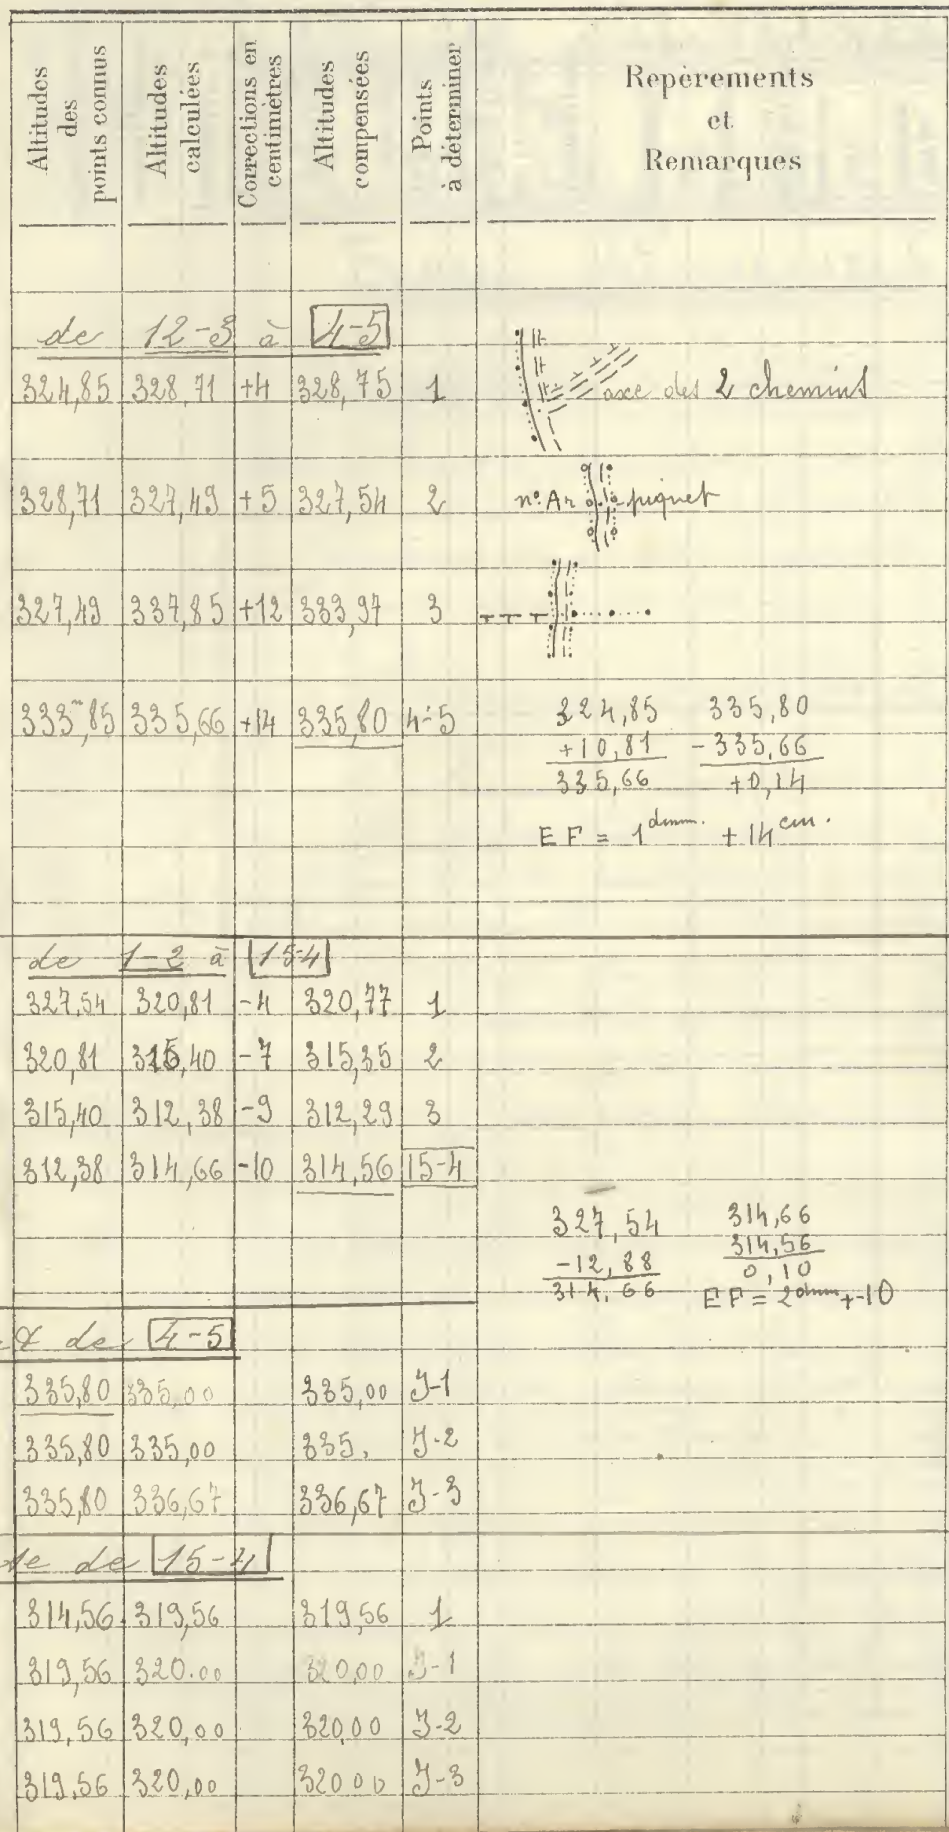 Altitudes des points connus | Altitudes calculées | Corrections en centimètres | Altitudes compensées | Points à déterminer | Repèrements et Remarques
de 12-3 à 4-5
324,85 328,71 +4 328,75 1 axe des 2 chemins
328,71 327,49 +5 327,54 2 n° Ar piquet
327,49 337,85 +12 333,97 3
333,85 335,66 +14 335,80 4-5
324,85 335,80
+10,81 -335,66
335,66 +0,14
EF = 1 dmm. +14 cm.
de 1-2 à 15-4
327,54 320,81 -4 320,77 1
320,81 315,40 -7 315,35 2
315,40 312,38 -9 312,29 3
312,38 314,66 -10 314,56 15-4
327,54 314,66
-12,88 314,56
314,66 0,10
EF = 2 dmm +-10
de 4-5
335,80 335,00 335,00 J-1
335,80 335,00 335, J-2
335,80 336,67 336,67 J-3
de 15-4
314,56 319,56 319,56 1
319,56 320.00 320,00 J-1
319,56 320,00 320,00 J-2
319.56 320,00 32000 J-3